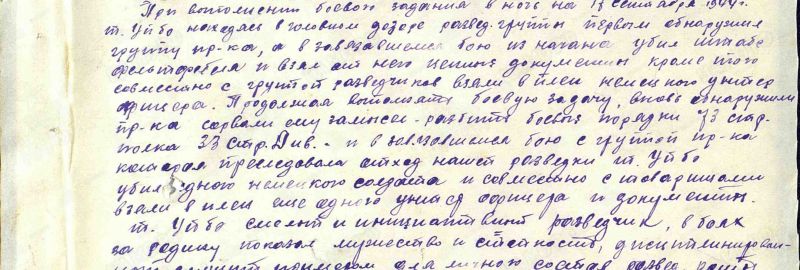 При выполнении боевого задания в ночь на 18 сентября 1944 г.
т. Уйбо находясь в головном дозоре развед. группы первым обнаружил
группу пр-ка, а в завязавшемся бою из нагана убил штабс
фельтфебеля и взял от него ценные документы кроме того
совместно с группой разведчиков взяли в плен немецкого унтер
офицера. Продолжая выполнять боевую задачу, вновь обнаружили
пр-ка сорвали ему замысел - разбить боевые порядки 73 стр.
полка 33 стр. Див. - и в завязавшемся бою с группой пр-ка
которая преследовала отход нашей разведки т. Уйбо
убил одного немецкого солдата и совместно с товарищами
взяли в плен еще одного унтер офицера и документы.
т. Уйбо смелый и инициативный разведчик, в боях
за родину показал мужество и стойкость, дисциплинирован-
примером для личного состава развед.